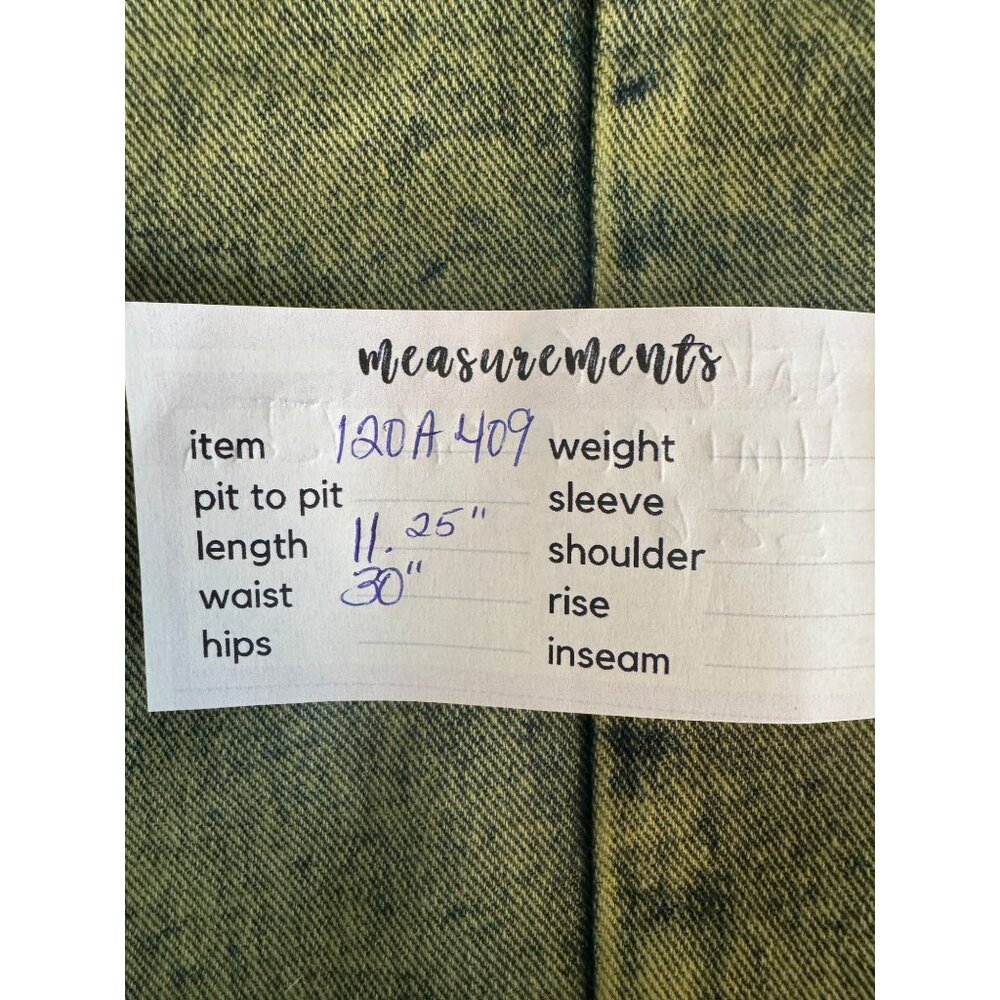 measurements
item 120A409 weight
pit to pit sleeve
length 11.25" shoulder
waist 30" rise
hips inseam